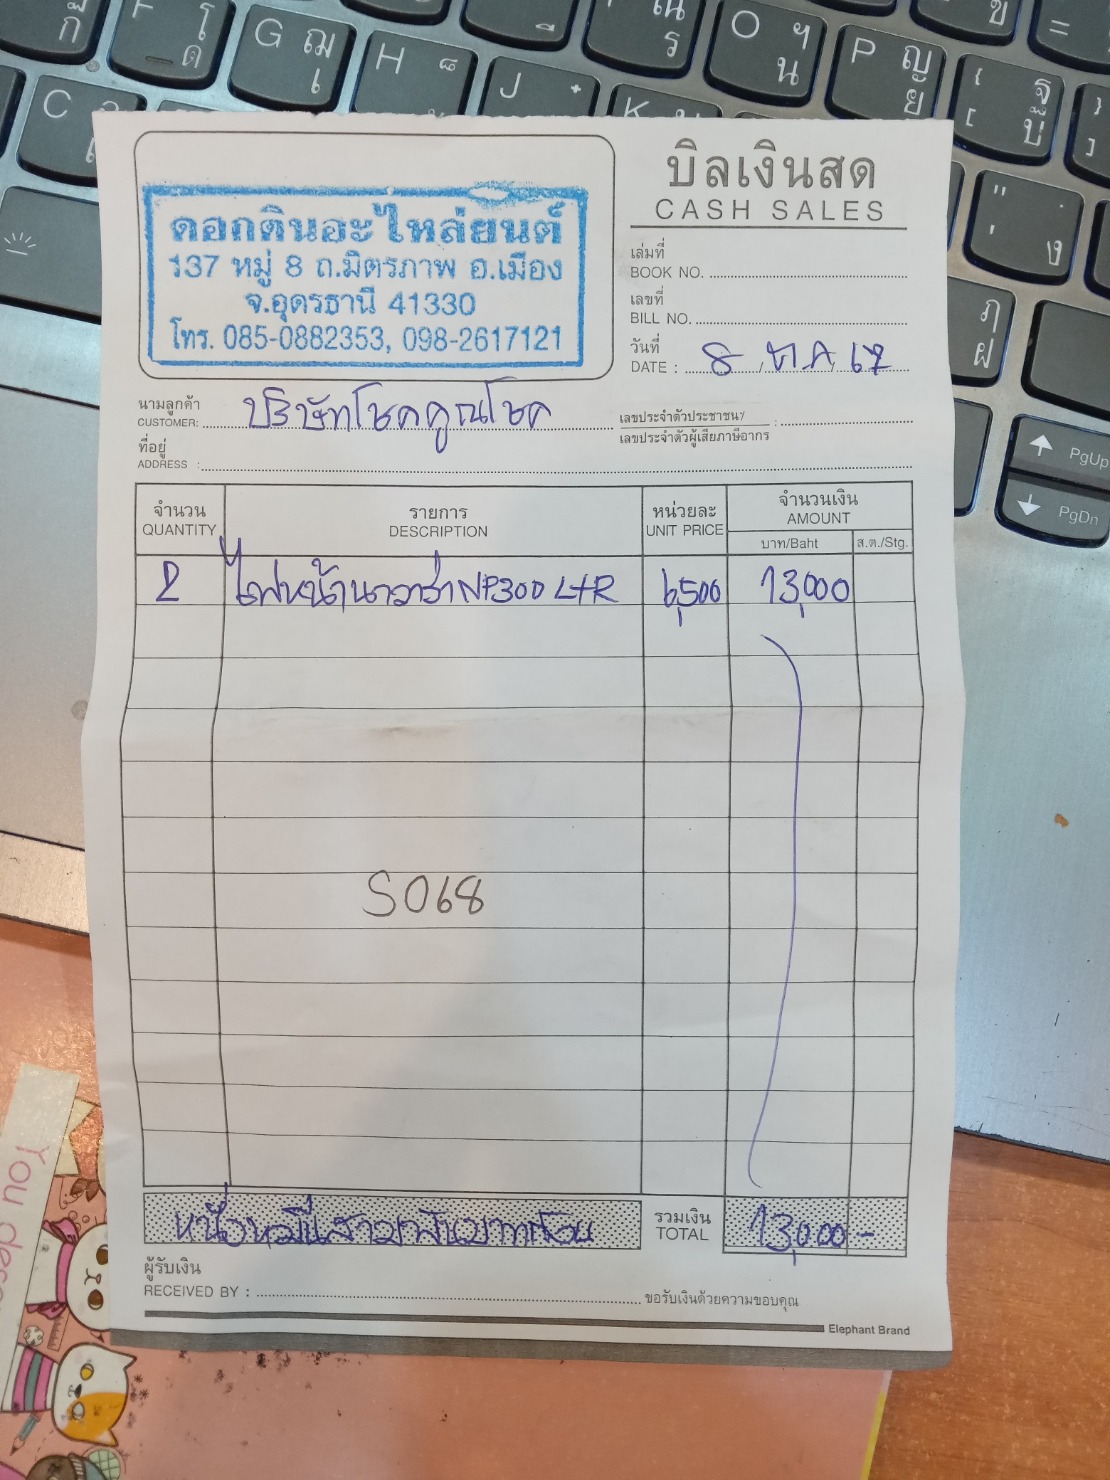 ก้
F โ ด
G ฌ เ
H ๘
J
K
O ฯ น
P ญ ย
{ ฐ
[ บ
C
" .
' ง
ฦ
ฝ
PgUp
PgDn
บิลเงินสด
CASH SALES
ดอกดินอะไหล่ยนต์
137 หมู่ 8 ถ.มิตรภาพ อ.เมือง
จ.อุดรธานี 41330
โทร. 085-0882353, 098-2617121
เล่มที่
BOOK NO.
เลขที่
BILL NO.
วันที่
DATE : 8 / ต.ค / 67
นามลูกค้า
CUSTOMER: บริษัทโชคคูณโชค
เลขประจำตัวประชาชน/
เลขประจำตัวผู้เสียภาษีอากร :
ที่อยู่
ADDRESS :
จำนวน รายการ หน่วยละ จำนวนเงิน
QUANTITY DESCRIPTION UNIT PRICE AMOUNT
บาท/Baht ส.ต./Stg.
2 ไฟหน้านาวาร่าNP300 L+R 6,500 13,000
S068
หนึ่งหมื่นสามพันบาทถ้วน รวมเงิน TOTAL 13,000 -
ผู้รับเงิน
RECEIVED BY : ขอรับเงินด้วยความขอบคุณ
Elephant Brand
You